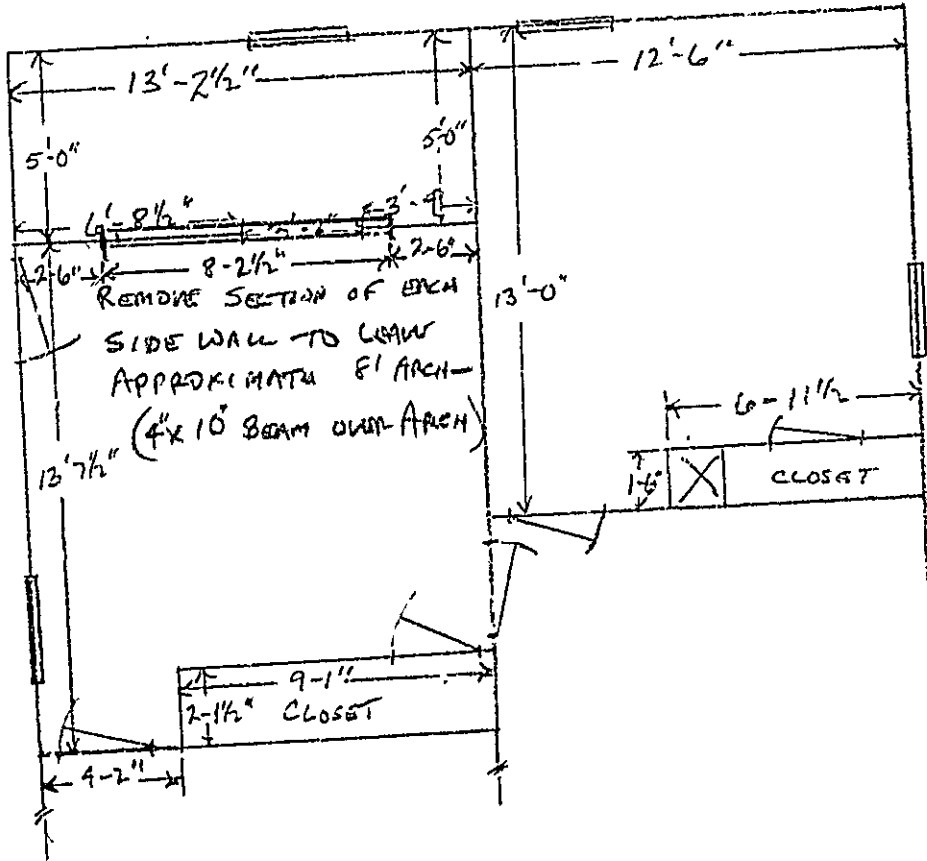 13'-2½"
12'-6"
5'-0"
5'-0"
8½"
2-6"
8-2½"
2-6"
REMOVE SECTION OF EACH
SIDE WALL TO LEAVE
APPROXIMATE 8' ARCH
(4"x 10" BEAM OVER ARCH)
13'-0"
13'7½"
6-11½
1-6"
CLOSET
9-1"
2-1½" CLOSET
4-2"